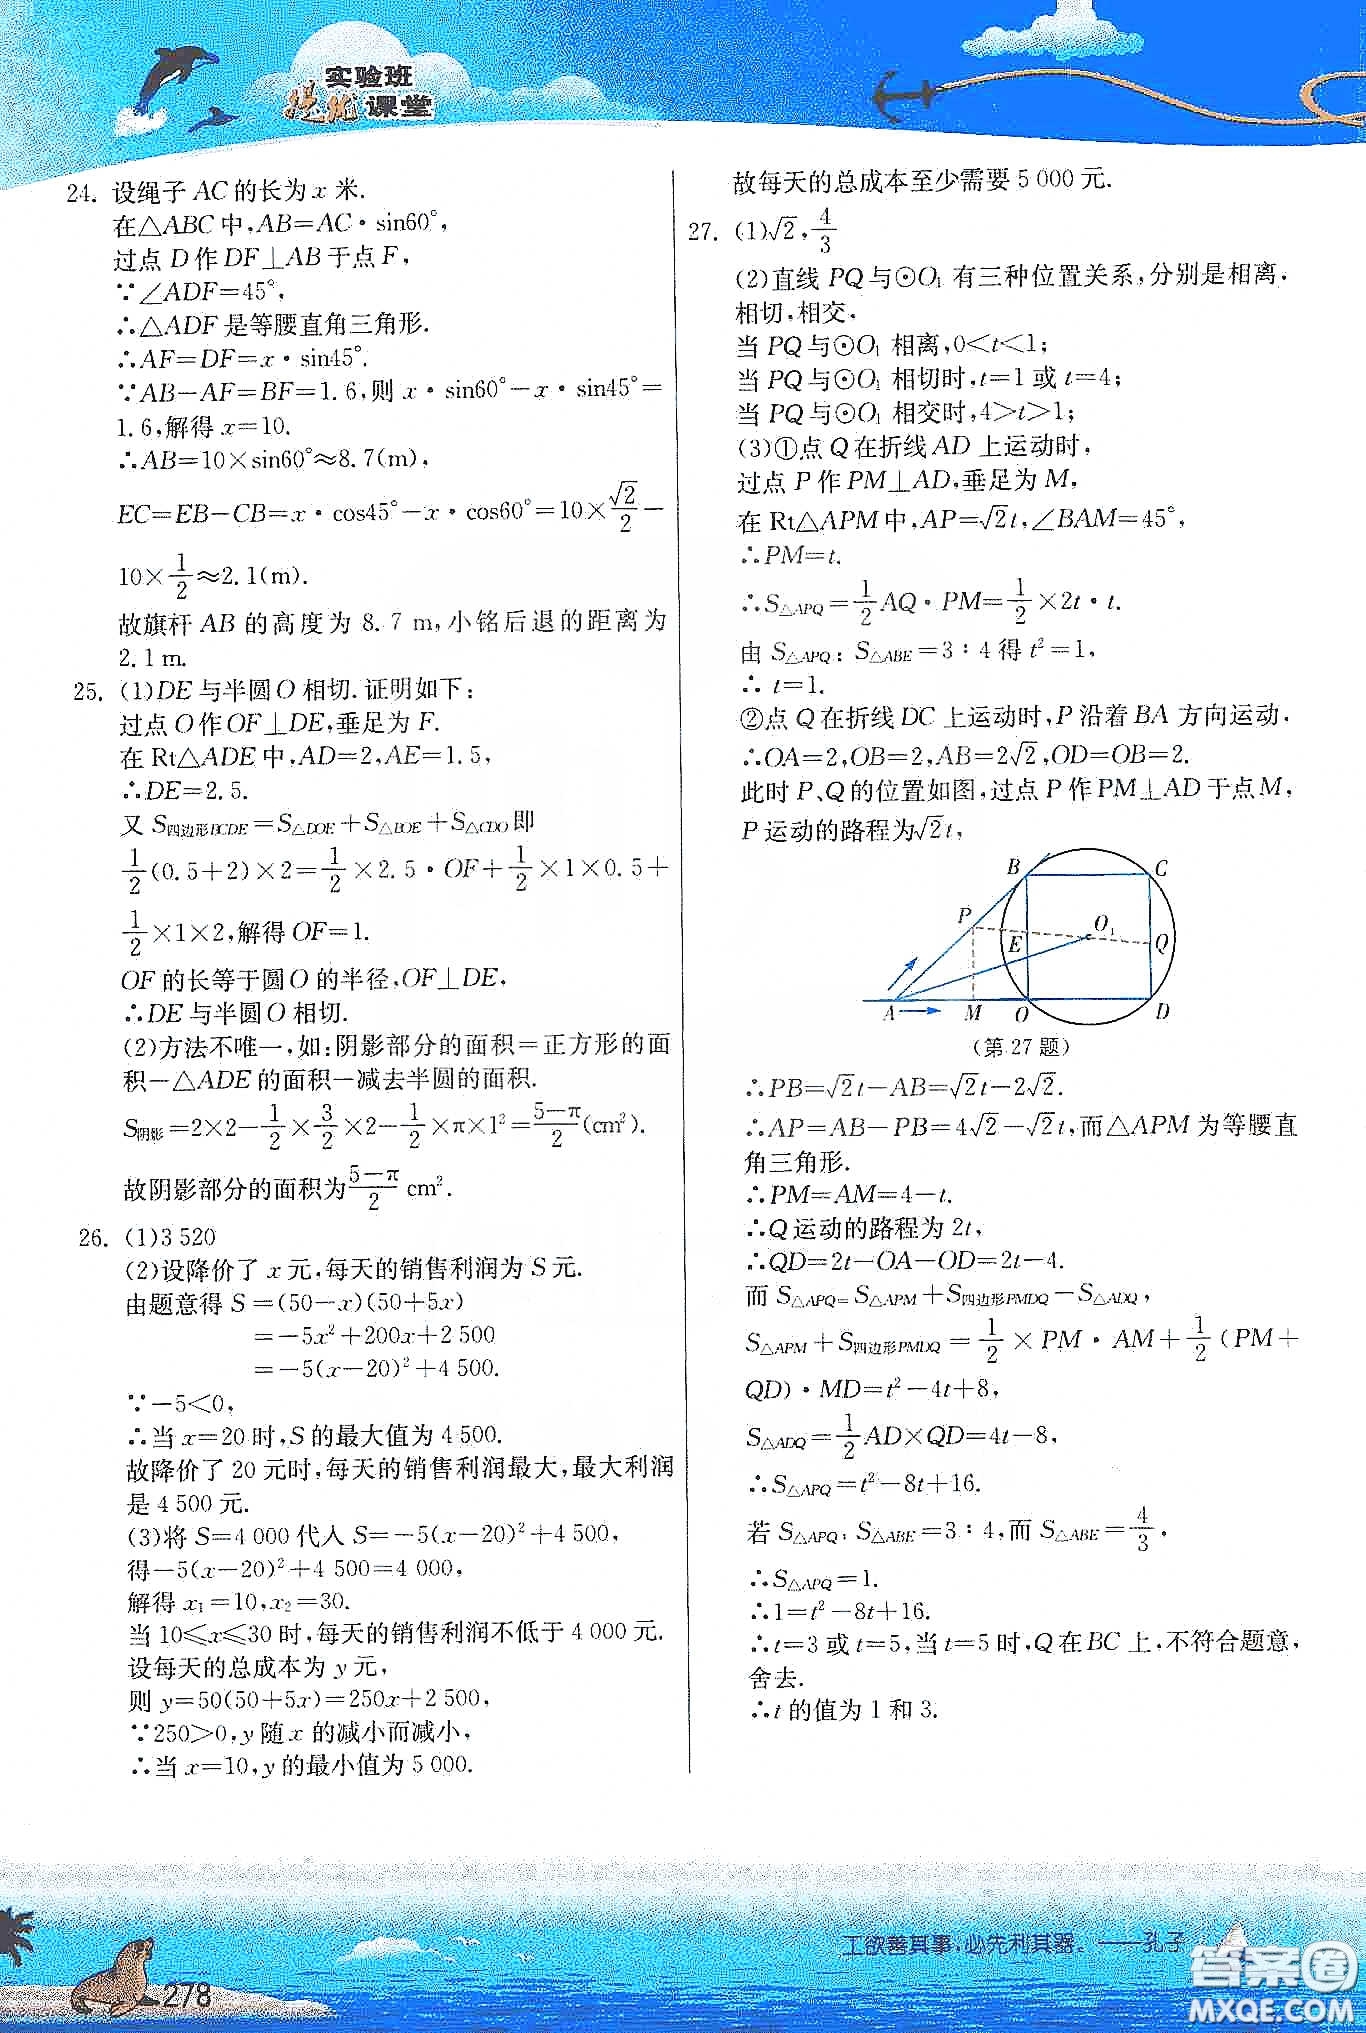 实验班
提优课堂
24. 设绳子 AC 的长为 x 米.
在△ABC 中,AB=AC·sin60°,
过点 D 作 DF⊥AB 于点 F,
∵∠ADF=45°,
∴△ADF 是等腰直角三角形.
∴AF=DF=x·sin45°.
∵AB−AF=BF=1.6,则 x·sin60°−x·sin45°=
1.6,解得 x=10.
∴AB=10×sin60°≈8.7(m),
EC=EB−CB=x·cos45°−x·cos60°=10×√2/2−
10×1/2≈2.1(m).
故旗杆 AB 的高度为 8.7 m,小铭后退的距离为
2.1 m.
25. (1)DE 与半圆 O 相切.证明如下:
过点 O 作 OF⊥DE,垂足为 F.
在 Rt△ADE 中,AD=2,AE=1.5,
∴DE=2.5.
又 S四边形BCDE=S△DOE+S△BOE+S△CDO 即
1/2(0.5+2)×2=1/2×2.5·OF+1/2×1×0.5+
1/2×1×2,解得 OF=1.
OF 的长等于圆 O 的半径,OF⊥DE,
∴DE 与半圆 O 相切.
(2)方法不唯一,如:阴影部分的面积=正方形的面
积−△ADE 的面积−减去半圆的面积.
S阴影=2×2−1/2×3/2×2−1/2×π×1²=(5−π)/2(cm²).
故阴影部分的面积为(5−π)/2 cm².
26. (1)3 520
(2)设降价了 x 元,每天的销售利润为 S 元.
由题意得 S=(50−x)(50+5x)
=−5x²+200x+2 500
=−5(x−20)²+4 500.
∵−5<0,
∴当 x=20 时,S 的最大值为 4 500.
故降价了 20 元时,每天的销售利润最大,最大利润
是 4 500 元.
(3)将 S=4 000 代入 S=−5(x−20)²+4 500,
得−5(x−20)²+4 500=4 000,
解得 x₁=10,x₂=30.
当 10≤x≤30 时,每天的销售利润不低于 4 000 元.
设每天的总成本为 y 元,
则 y=50(50+5x)=250x+2 500,
∵250>0,y 随 x 的减小而减小,
∴当 x=10,y 的最小值为 5 000.
故每天的总成本至少需要 5 000 元.
27. (1)√2,4/3
(2)直线 PQ 与⊙O₁ 有三种位置关系,分别是相离,
相切,相交,
当 PQ 与⊙O₁ 相离,0<t<1;
当 PQ 与⊙O₁ 相切时,t=1 或 t=4;
当 PQ 与⊙O₁ 相交时,4>t>1;
(3)①点 Q 在折线 AD 上运动时,
过点 P 作 PM⊥AD,垂足为 M,
在 Rt△APM 中,AP=√2t,∠BAM=45°,
∴PM=t.
∴S△APQ=1/2AQ·PM=1/2×2t·t.
由 S△APQ:S△ABE=3:4 得 t²=1,
∴ t=1.
②点 Q 在折线 DC 上运动时,P 沿着 BA 方向运动,
∴OA=2,OB=2,AB=2√2,OD=OB=2.
此时 P、Q 的位置如图,过点 P 作 PM⊥AD 于点 M,
P 运动的路程为√2t,
B C
P O₁
E Q
A M O D
(第 27 题)
∴PB=√2t−AB=√2t−2√2.
∴AP=AB−PB=4√2−√2t,而△APM 为等腰直
角三角形.
∴PM=AM=4−t.
∴Q 运动的路程为 2t,
∴QD=2t−OA−OD=2t−4.
而 S△APQ=S△APM+S四边形PMDQ−S△ADQ,
S△APM+S四边形PMDQ=1/2×PM·AM+1/2(PM+
QD)·MD=t²−4t+8,
S△ADQ=1/2AD×QD=4t−8,
∴S△APQ=t²−8t+16.
若 S△APQ:S△ABE=3:4,而 S△ABE=4/3,
∴S△APQ=1.
∴1=t²−8t+16.
∴t=3 或 t=5,当 t=5 时,Q 在 BC 上,不符合题意,
舍去.
∴t 的值为 1 和 3.
工欲善其事,必先利其器。——孔子
278
答案圈
MXQE.COM